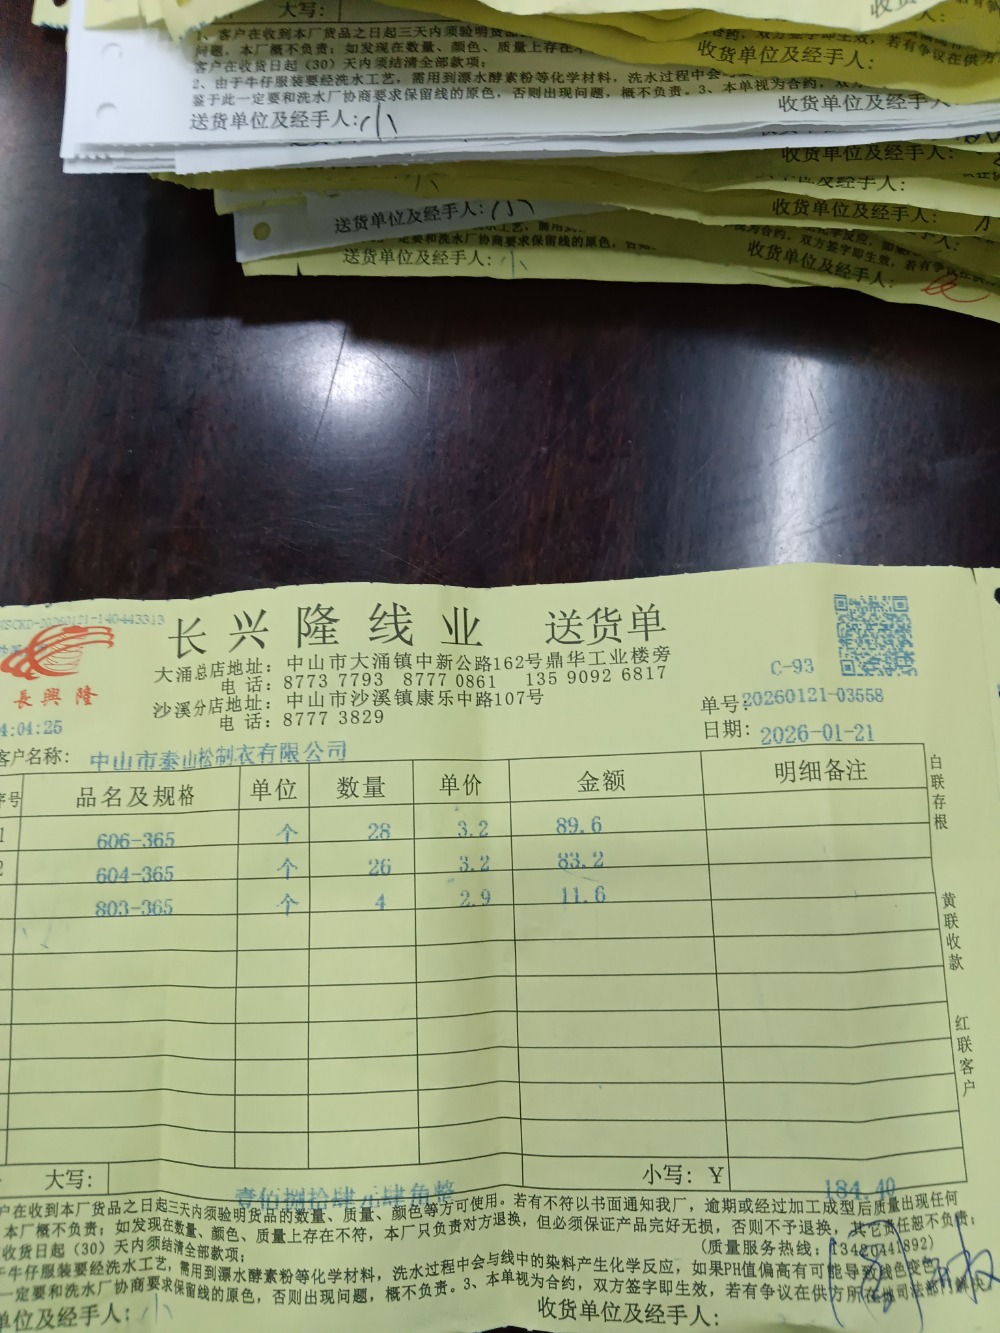 大写：
1、客户在收到本厂货品之日起三天内须验明货品
问题，本厂概不负责；如发现在数量、颜色、质量上存在不
客户在收货日起（30）天内须结清全部款项；
2、由于牛仔服装要经洗水工艺，需用到漂水酵素粉等化学材料，洗水过程中会与
鉴于此一定要和洗水厂协商要求保留线的原色，否则出现问题，概不负责。3、本单视为合约，双方
送货单位及经手人：小
收货
合约，双方签字即生效，若有争议在供方
收货单位及经手人：
收货单位及经手人：
收货单位及经手人：
收货单位及经手人：
收货单位及经手人：
送货单位及经手人：小
一定要和洗水厂协商要求保留线的原色，
视为合约，双方签字即生效，若有争议在供
送货单位及经手人：小
收货单位及经手人：
长兴隆线业 送货单
長興隆
大涌总店地址：中山市大涌镇中新公路162号鼎华工业楼旁
电 话：8773 7793 8777 0861 135 9092 6817
沙溪分店地址：中山市沙溪镇康乐中路107号
电 话：8777 3829
C-93
单号：20260121-03558
日期：2026-01-21
4:04:25
客户名称：中山市泰山松制衣有限公司
序号 品名及规格 单位 数量 单价 金额 明细备注
1 606-365 个 28 3.2 89.6
2 604-365 个 26 3.2 83.2
803-365 个 4 2.9 11.6
白联存根
黄联收款
红联客户
大写：壹佰捌拾肆元肆角整 小写：￥184.40
户在收到本厂货品之日起三天内须验明货品的数量、质量、颜色等方可使用。若有不符以书面通知我厂，逾期或经过加工成型后质量出现任何
本厂概不负责；如发现在数量、颜色、质量上存在不符，本厂只负责对方退换，但必须保证产品完好无损，否则不予退换，其它责任恕不负责；
收货日起（30）天内须结清全部款项；
（质量服务热线：13420441892）
于牛仔服装要经洗水工艺，需用到漂水酵素粉等化学材料，洗水过程中会与线中的染料产生化学反应，如果PH值偏高有可能导致线色变色
一定要和洗水厂协商要求保留线的原色，否则出现问题，概不负责。3、本单视为合约，双方签字即生效，若有争议在供方所在地司法部门解决
单位及经手人：小
收货单位及经手人：